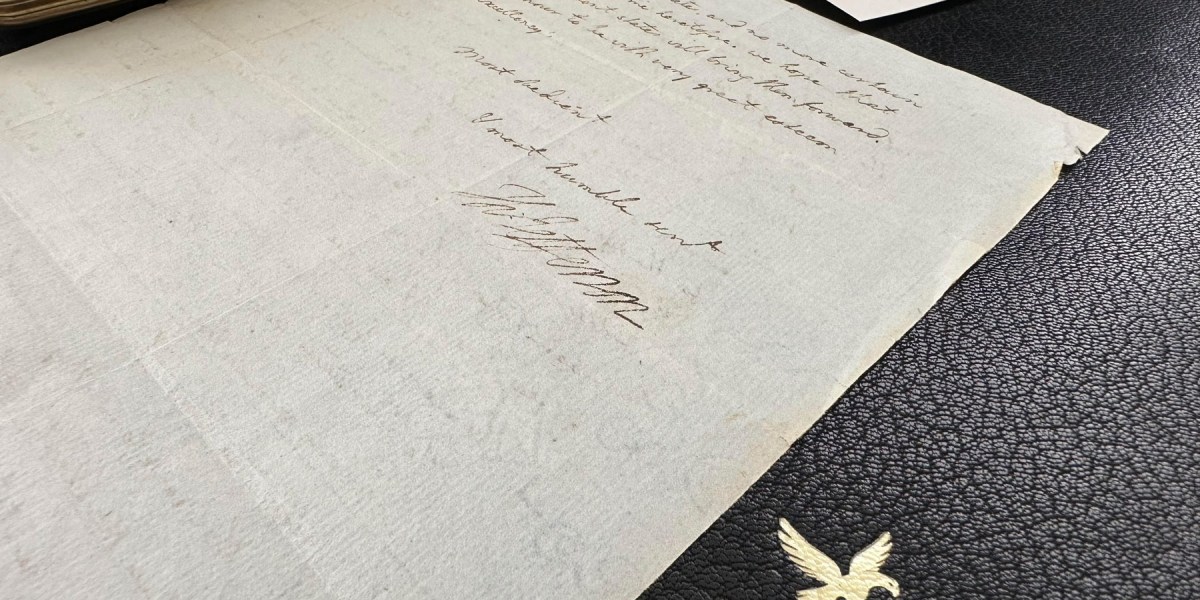 and no more certain
we hope that
state will bring them forward.
to be with very great esteem
most obedient
& most humble servt
Th: Jefferson